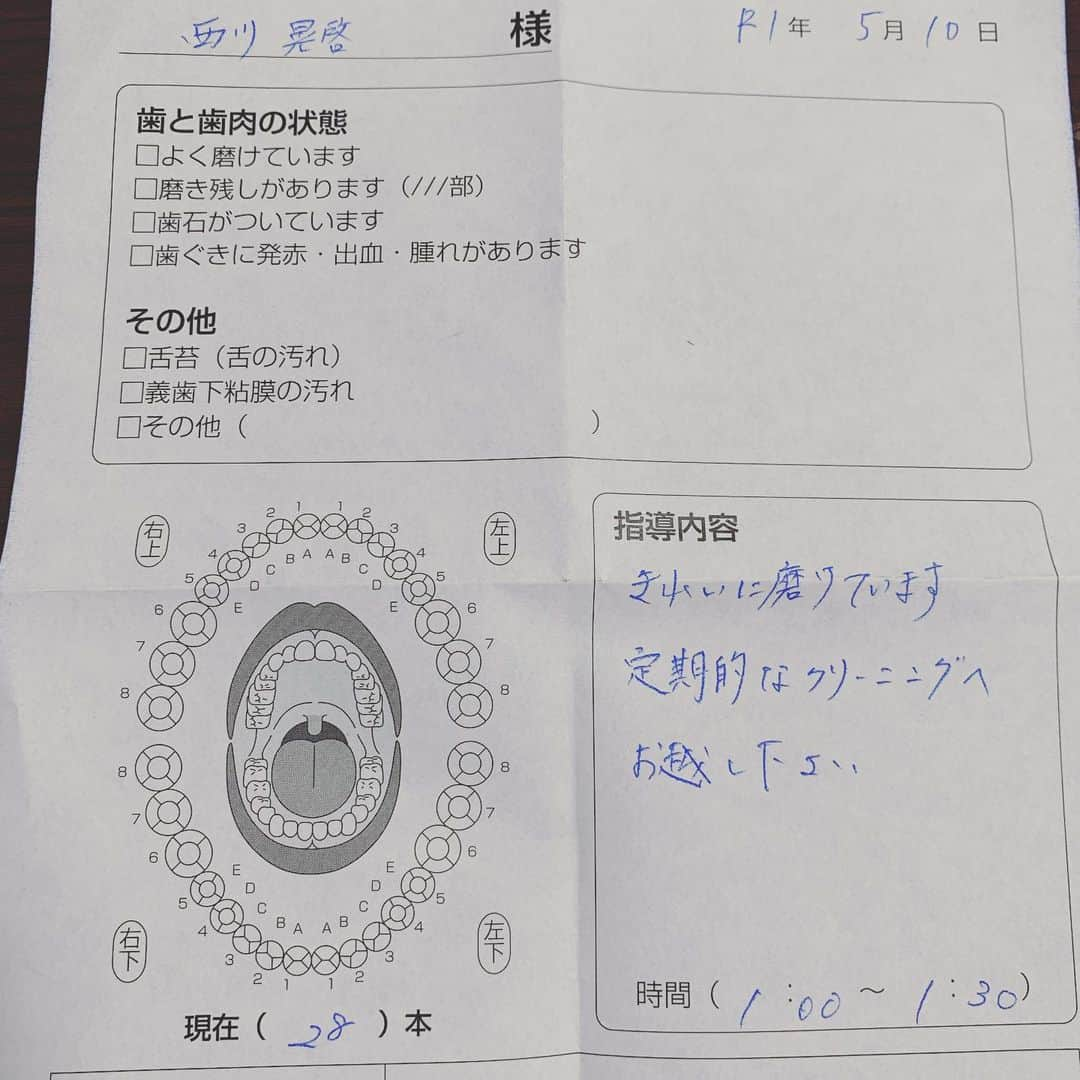 西川 晃啓 様 R1年 5月10日
歯と歯肉の状態
□よく磨けています
□磨き残しがあります（///部）
□歯石がついています
□歯ぐきに発赤・出血・腫れがあります
その他
□舌苔（舌の汚れ）
□義歯下粘膜の汚れ
□その他（ ）
右上 左上
1 1
2 2
3 3
4 4
5 5
6 6
7 7
8 8
A A
B B
C C
D D
E E
8 8
7 7
6 6
5 5
4 4
3 3
2 2
1 1
E E
D D
C C
B B
A A
右下 左下
現在（ 28 ）本
指導内容
きれいに磨けています
定期的なクリーニングへ
お越し下さい
時間（ 1:00 ～ 1:30）